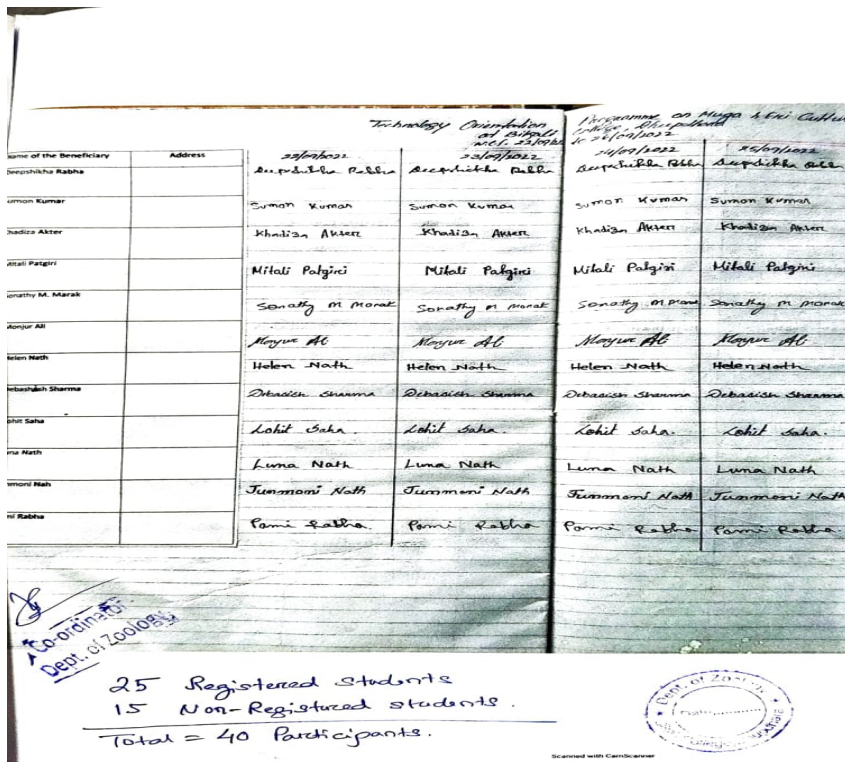 Technology Orientation Programme on Muga & Eri Cultur
at Bikali College, Dhupdhara
w.e.f. 22/09/22 to 26/09/2022
ame of the Beneficiary Address 22/09/2022 23/09/2022 24/09/2022 25/09/2022
Deepshikha Rabha Deepshikha Rabha Deepshikha Rabha Deepshikha Rabha Deepshikha Rabha
umon Kumar Sumon Kumar Sumon Kumar Sumon Kumar Sumon Kumar
hadiza Akter Khadiza Akter Khadiza Akter Khadiza Akter Khadiza Akter
Mitali Patgiri Mitali Patgiri Mitali Patgiri Mitali Patgiri Mitali Patgiri
onathy M. Marak Sonathy M Marak Sonathy M Marak Sonathy M Marak Sonathy M Marak
Monjur Ali Monjur Ali Monjur Ali Monjur Ali Monjur Ali
elen Nath Helen Nath Helen Nath Helen Nath Helen Nath
ebashish Sharma Debasish Sharma Debasish Sharma Debasish Sharma Debasish Sharma
ohit Saha Lohit Saha. Lohit Saha. Lohit Saha. Lohit Saha.
na Nath Luna Nath Luna Nath Luna Nath Luna Nath
nmoni Nah Junmoni Nath Junmoni Nath Junmoni Nath Junmoni Nath
mi Rabha Pomi Rabha. Pomi Rabha Pomi Rabha Pomi Rabha.
Co-ordinator
Dept. of Zoology
25 Registered Students
15 Non-Registered students.
Total = 40 Participants.
Dept. of Zoology
Date
Scanned with CamScanner